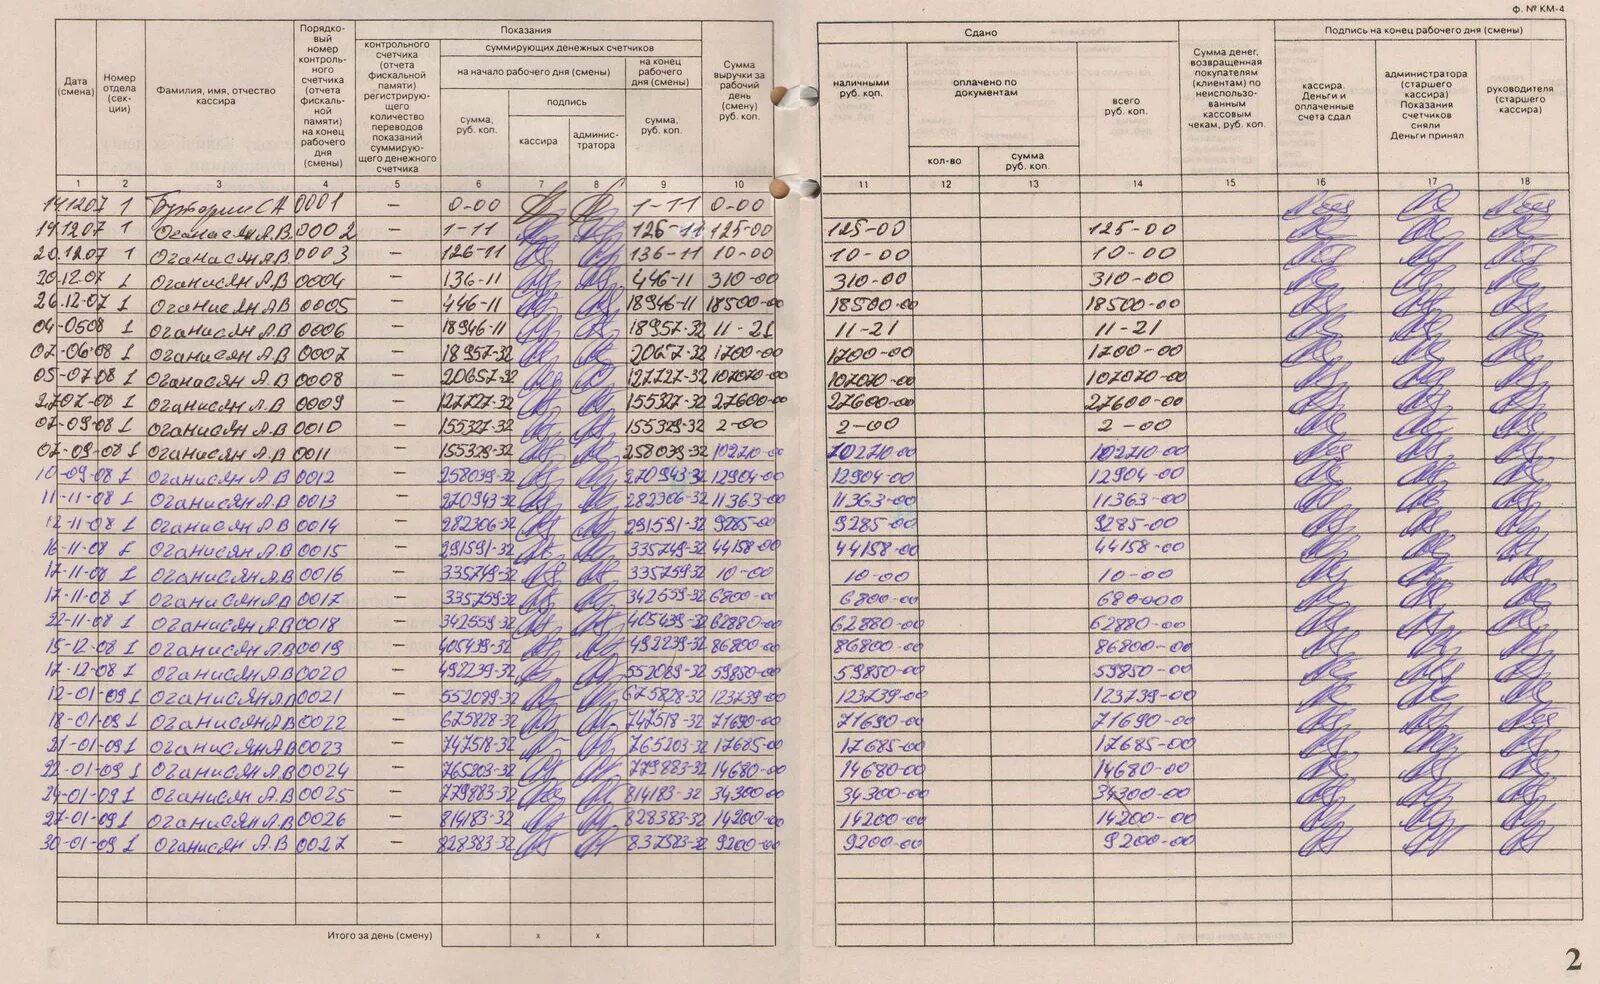 Ф. № КМ-4
Дата (смена)
Номер отдела (секции)
Фамилия, имя, отчество кассира
Порядко-
вый
номер
контроль-
ного
счетчика
(отчета
фискаль-
ной
памяти)
на конец
рабочего
дня
(смены)
Показания
контрольного
счетчика
(отчета
фискальной
памяти)
регистрирую-
щего
количество
переводов
показаний
суммирую-
щего денежного
счетчика
суммирующих денежных счетчиков
на начало рабочего дня (смены)
сумма,
руб. коп.
подпись
кассира
админис-
тратора
на конец
рабочего
дня (смены)
сумма,
руб. коп.
Сумма
выручки за
рабочий
день
(смену)
руб. коп.
Сдано
наличными
руб. коп.
оплачено по
документам
кол-во
сумма
руб. коп.
всего
руб. коп.
Сумма денег,
возвращенная
покупателям
(клиентам) по
неиспользо-
ванным
кассовым
чекам, руб. коп.
Подпись на конец рабочего дня (смены)
кассира.
Деньги и
оплаченные
счета сдал
администратора
(старшего
кассира)
Показания
счетчиков
сняли
Деньги принял
руководителя
(старшего
кассира)
1 2 3 4 5 6 7 8 9 10 11 12 13 14 15 16 17 18
191207 1 0001 – 0-00 1-11 0-00
19.1207 1 Оганисян А.В. 0002 – 1-11 126-11 125-00 125-00 125-00
20.1207 1 Оганисян А.В. 0003 – 126-11 136-11 10-00 10-00 10-00
20.12.07 1 Оганисян А.В 0004 – 136-11 446-11 310-00 310-00 310-00
26.12-07 1 Оганисян АВ 0005 – 446-11 18946-11 18500-00 18500-00 18500-00
04-0508 1 Оганисян А.В 0006 – 18946-11 18957-32 11-21 11-21 11-21
07-06-08 1 Оганисян А.В 0007 – 18957-32 20657-32 1700-00 1700-00 1700-00
05-07-08 1 Оганисян А.В 0008 – 20657-32 127727-32 107070-00 107070-00 107070-00
2707-08 1 Оганисян А.В 0009 – 127727-32 155327-32 27600-00 27600-00 27600-00
07-09-08 1 Оганисян А.В 0010 – 155327-32 155329-32 2-00 2-00 2-00
07-09-08 1 Оганисян А.В 0011 – 155329-32 258039-32 102710-00 102710-00 102710-00
10-09-08 1 Оганисян А.В 0012 – 258039-32 270943-32 12904-00 12904-00 12904-00
11-11-08 1 Оганисян А.В 0013 – 270943-32 282306-32 11363-00 11363-00 11363-00
12-11-08 1 Оганисян А.В 0014 – 282306-32 291591-32 9285-00 9285-00 9285-00
16-11-08 1 Оганисян А.В 0015 – 291591-32 335749-32 44158-00 44158-00 44158-00
17-11-08 1 Оганисян А.В 0016 – 335749-32 335759-32 10-00 10-00 10-00
17-11-08 1 Оганисян А.В 0017 – 335759-32 342559-32 6800-00 6800-00 680000
22-11-08 1 Оганисян А.В 0018 – 342559-32 405439-32 62880-00 62880-00 62880-00
15-12-08 1 Оганисян А.В 0019 – 405439-32 492239-32 86800-00 86800-00 86800-00
17-12-08 1 Оганисян А.В 0020 – 492239-32 552089-32 59850-00 59850-00 59850-00
12-01-09 1 Оганисян А.В 0021 – 552089-32 675828-32 123739-00 123739-00 123739-00
18-01-09 1 Оганисян А.В 0022 – 675828-32 747518-32 71690-00 71690-00 71690-00
21-01-09 1 Оганисян А.В 0023 – 747518-32 765203-32 17685-00 17685-00 17685-00
22-01-09 1 Оганисян А.В 0024 – 765203-32 779883-32 14680-00 14680-00 14680-00
24-01-09 1 Оганисян А.В 0025 – 779883-32 814183-32 34300-00 34300-00 34300-00
27-01-09 1 Оганисян А.В 0026 – 814183-32 828383-32 14200-00 14200-00 14200-00
30-01-09 1 Оганисян А.В 0027 – 828383-32 837583-32 9200-00 9200-00 9200-00
Итого за день (смену) x x
2